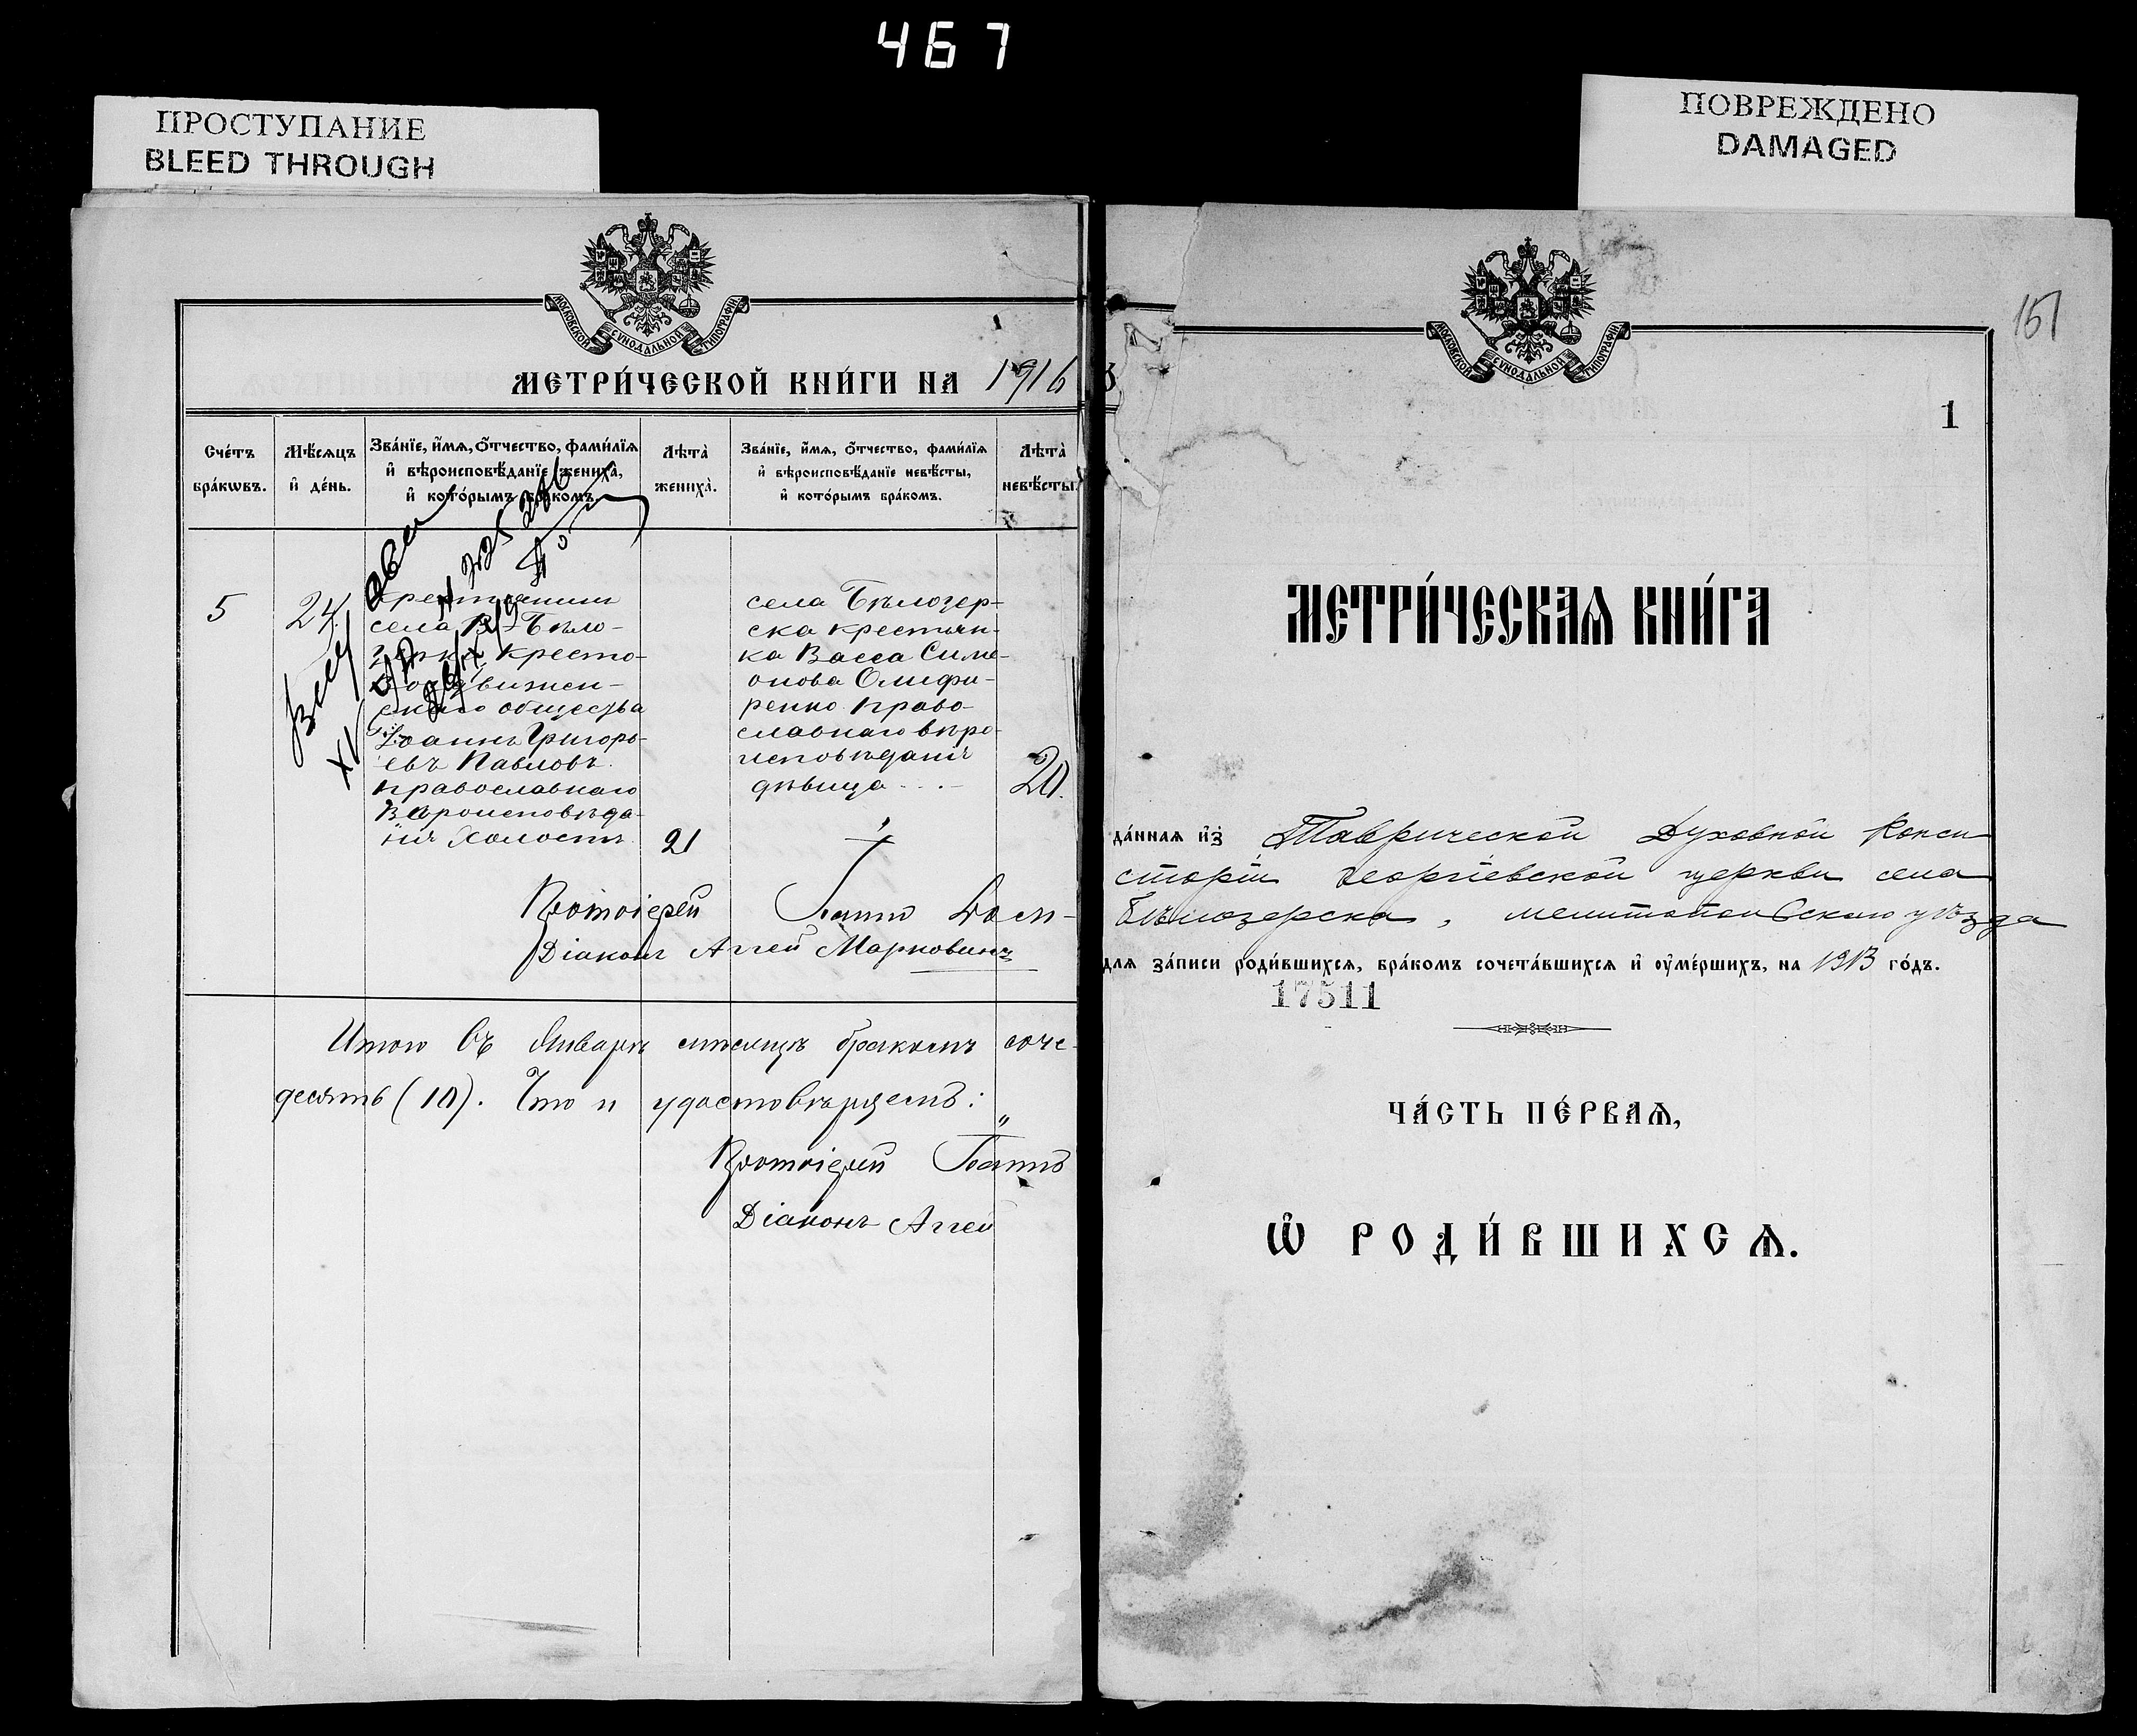 467
ПРОСТУПАНИЕ
BLEED THROUGH
МОСКОВСКОЙ СѴНОДАЛЬНОЙ ТИПОГРАФІИ
МЕТРИ́ЧЕСКОЙ КНИ́ГИ НА 1916
Сче́тъ бра́кѡвъ.
Мѣ́сяцъ и҆ де́нь.
Зва́нїе, и҆́мѧ, ѻ҆́тчество, фами́лїѧ
и҆ вѣроисповѣ́данїе жениха̀,
и҆ кото́рымъ бра́комъ.
Лѣта̀ жениха̀.
Зва́нїе, и҆́мѧ, ѻ҆́тчество, фами́лїѧ
и҆ вѣроисповѣ́данїе невѣ́сты,
и҆ кото́рымъ бра́комъ.
Лѣта̀ невѣ́сты.
5
24.
села В-Бѣло-
кресто-
воздвижен-
скаго общества
Іоаннъ Григорь-
евъ Павловъ
православнаго
вѣроисповѣда-
нія холостъ
21
села Бѣлозер-
ска крестьян-
ка Васса Симе-
онова Олифи-
ренко право-
славнаго вѣро-
исповѣданія
дѣвица
20.
Протоіерей Іоаннъ
Діаконъ Аггей Марковичъ
Итого въ Январѣ мѣсяцѣ бракомъ соче-
десять (10). Что и удостовѣряемъ:
Протоіерей Іоаннъ
Діаконъ Аггей
ПОВРЕЖДЕНО
DAMAGED
151
МОСКОВСКОЙ СѴНОДАЛЬНОЙ ТИПОГРАФІИ
1
МЕТРИ́ЧЕСКАѦ КНИ́ГА
да́ннаѧ и҆з̾ Таврической Духовной Конси
сторіи Георгіевской церкви села
Бѣлозерска, Мелитопольскаго уѣзда
для за́писи роди́вшихсѧ, бра́комъ сочета́вшихсѧ и҆ ѹ҆ме́ршихъ, на 1913 го́дъ.
17511
ЧА́СТЬ ПЕ́РВАѦ,
Ѽ РОДИ́ВШИХСѦ.